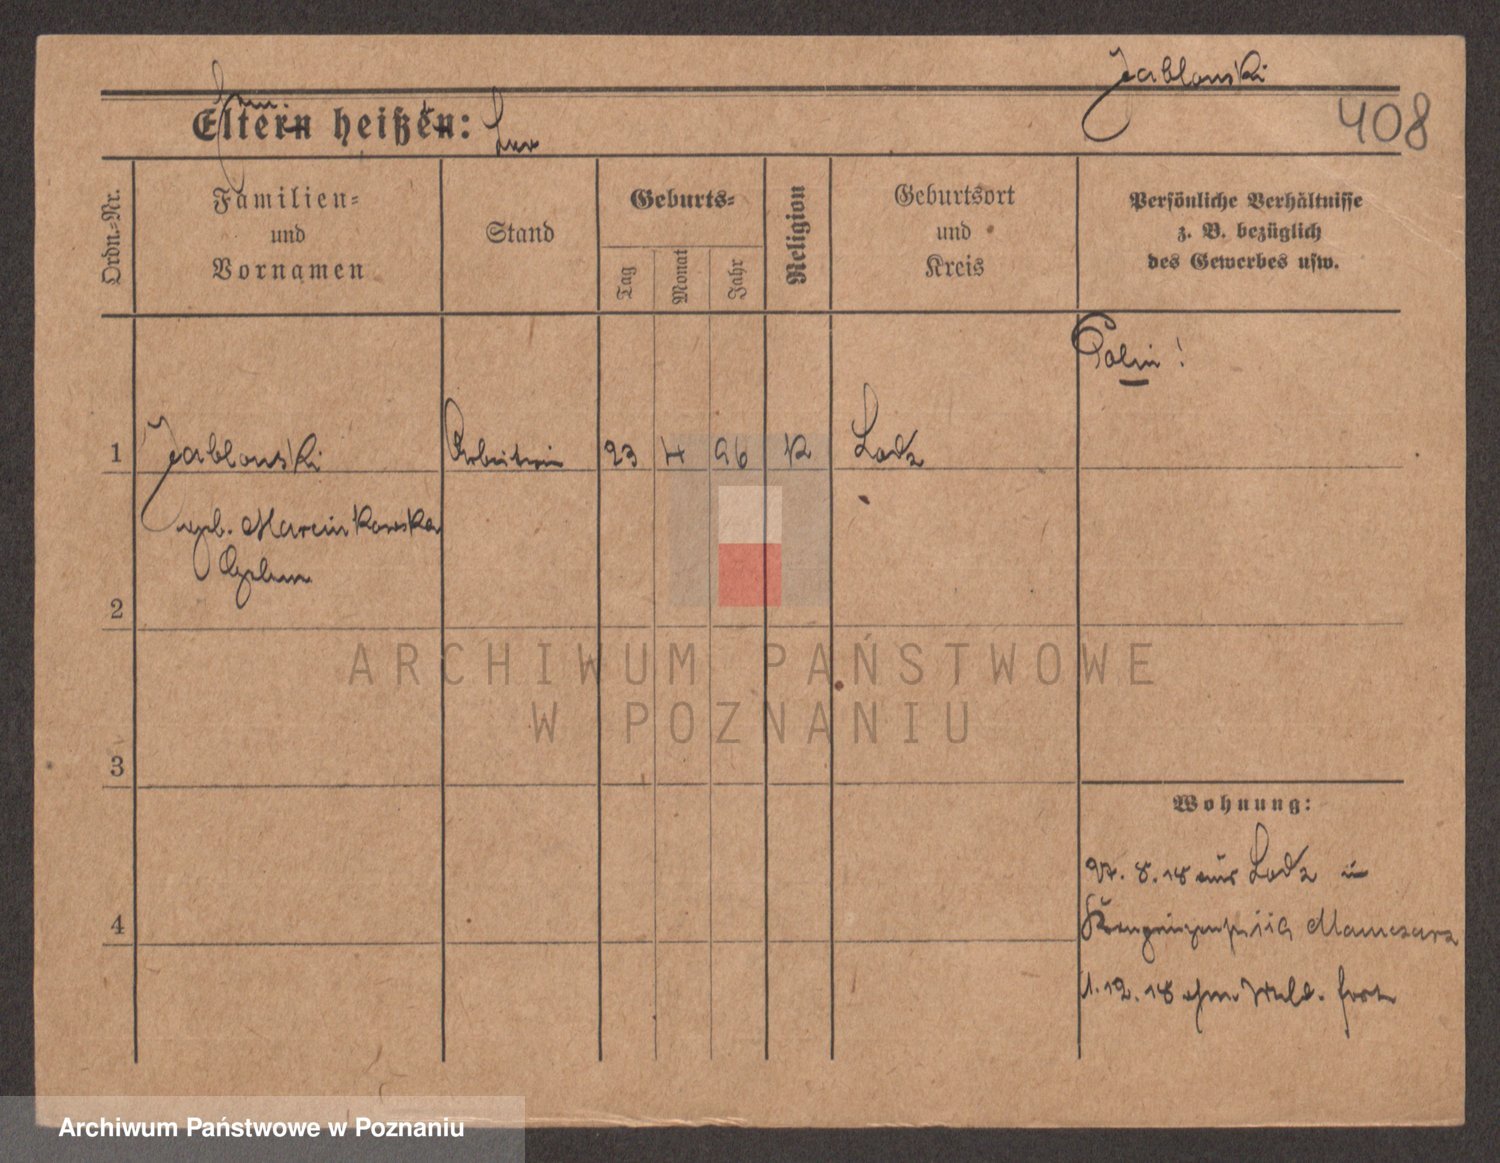 Jablonski
408
Eltern heißen:
Ordn.-Nr.
Familien-
und
Vornamen
Stand
Geburts-
Tag
Monat
Jahr
Religion
Geburtsort
und
Kreis
Persönliche Verhältnisse
z. B. bezüglich
des Gewerbes usw.
Polin!
1 Jablonski Arbeiterin 23 4 96 K Lodz
geb. Marcinkowska
2
3
4
Wohnung:
27. 8. 18 aus Lodz in
1. 12. 18 ohne Meld. fort
ARCHIWUM PAŃSTWOWE
W POZNANIU
Archiwum Państwowe w Poznaniu